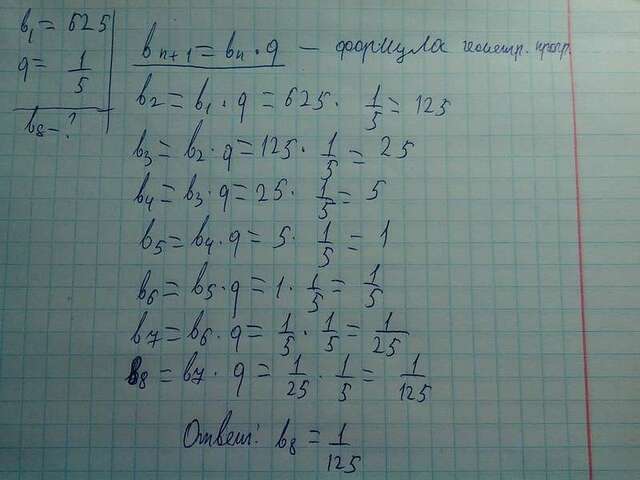 b₁ = 625
q = 1/5
b₈ – ?
bₙ₊₁ = bₙ · q — формула геометр. прогр.
b₂ = b₁ · q = 625 · 1/5 = 125
b₃ = b₂ · q = 125 · 1/5 = 25
b₄ = b₃ · q = 25 · 1/5 = 5
b₅ = b₄ · q = 5 · 1/5 = 1
b₆ = b₅ · q = 1 · 1/5 = 1/5
b₇ = b₆ · q = 1/5 · 1/5 = 1/25
b₈ = b₇ · q = 1/25 · 1/5 = 1/125
Ответ: b₈ = 1/125